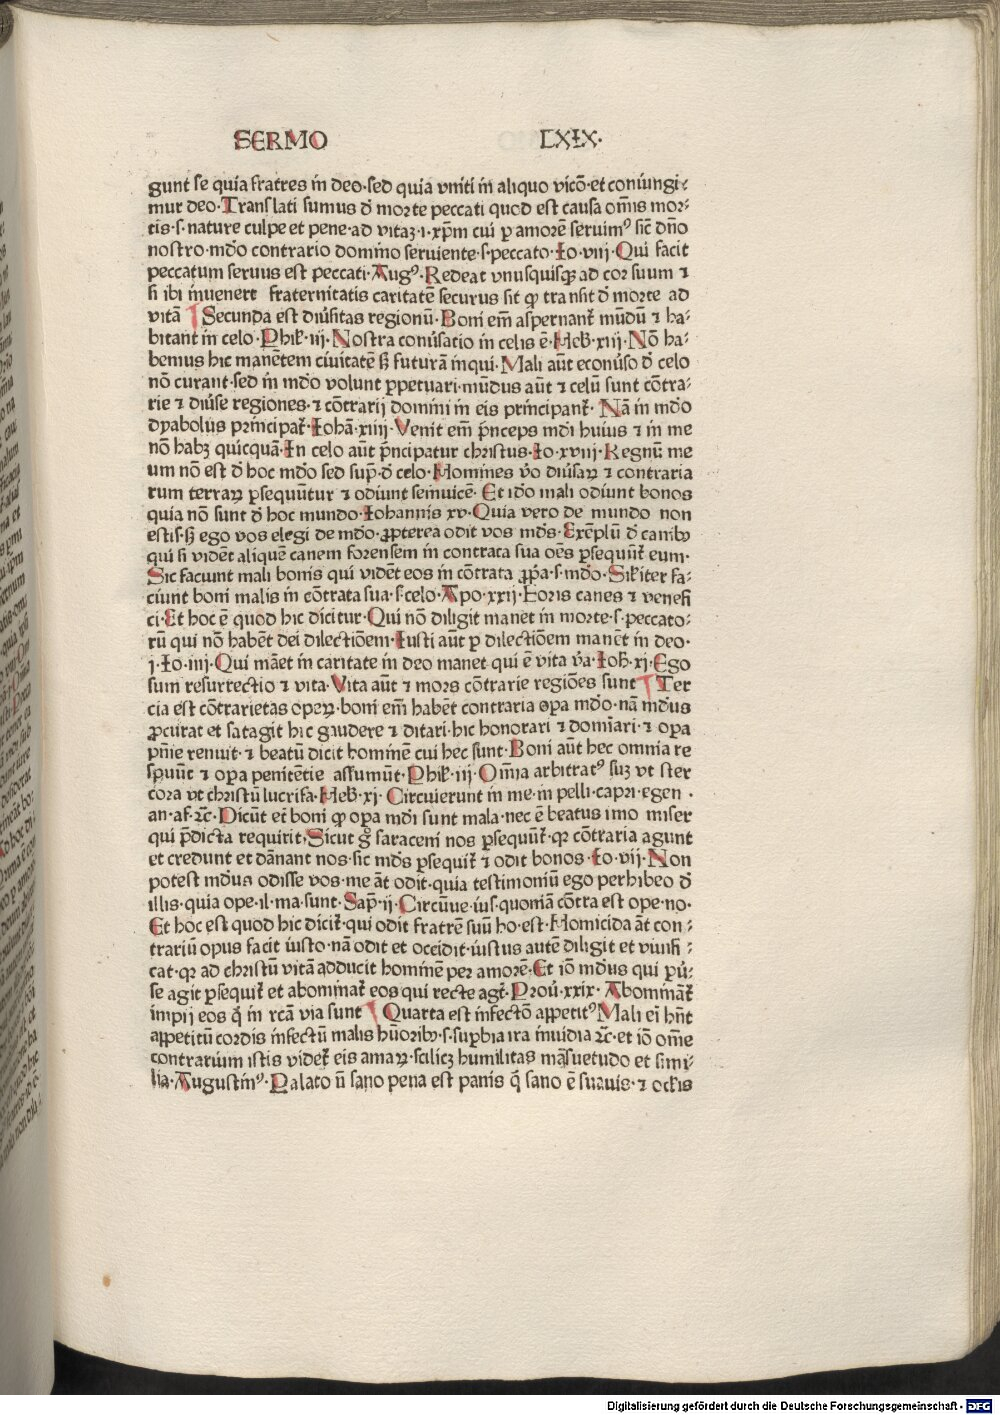 SERMO LXIX·
gunt se quia fratres in deo·sed quia vniti in aliquo vicō·et coniungi⸗
mur deo·Translati sumus đ morte peccati quod est causa om̄is mor⸗
tis·s·nature culpe et pene·ad vitaꝫ·i·xp̄m cui ꝑ amorē seruimꝰ sic̄ dn̄o
nostro·mđo contrario domino seruiente·s·peccato·Io·viij·Qui facit
peccatum seruus est peccati·Augꝰ·Redeat vnusquisqꝫ ad cor suum ⁊
si ibi inuenerit fraternitatis caritatē securus sit ꝙ transit đ morte ad
vitā ¶ Secunda est diu̾sitas regionū·Boni em̄ aspernant̾ mūdū ⁊ ha⸗
bitant in celo·Phil̾·iij·Nostra conu̾satio in celis ē·Heb̾·xiij·Nō ha⸗
bemus hic manētem ciuitatē sꝫ futurā inqui·Mali aūt econu̾so đ celo
nō curant·sed in mđo volunt ꝑpetuari·mūdus aūt ⁊ celū sunt cōtra⸗
rie ⁊ diu̾se regiones·⁊ cōtrarij domini in eis principant̾·Nā in mđo
dyabolus principat̾·Iohā·xiiij·Venit em̄ pn̄ceps mđi huius ⁊ in me
nō habꝫ quicquā·In celo aūt pn̄cipatur christus·Io·xviij·Regnū me
um nō est đ hoc mđo sed sup̄·đ celo·Homines v̾o diu̾saꝝ ⁊ contraria
rum terraꝝ ꝑsequūtur ⁊ odiunt seinuicē·Et iđo mali odiunt bonos
quia nō sunt đ hoc mundo·Iohannis xv·Quia vero de mundo non
estis·sꝫ ego vos elegi de mđo·ꝓpterea odit vos mđs·Exēplū đ canibꝰ
qui si vidēt aliquē canem forensem in contrata sua oēs ꝑsequūt̾ eum·
Sic faciunt mali bonis qui vidēt eos in cōtrata ꝓpa·s·mđo·Sil̾iter fa⸗
ciunt boni malis in cōtrata sua·s·celo·Apo·xxij·Foris canes ⁊ venefi
ci·Et hoc ē quod hic dicitur·Qui nō diligit manet in morte·s·peccato⸗
rū qui nō habēt dei dilectiōem·Iusti aūt ꝑ dilectiōem manēt in deo·
j·Io·iiij·Qui māet in caritate in deo manet qui ē vita v̾a·Ioh̄·xj·Ego
sum resurrectio ⁊ vita·Vita aūt ⁊ mors cōtrarie regiōes sunt ¶ Ter
cia est cōtrarietas opeꝝ·boni em̄ habēt contraria opa mđo·nā mđus
ꝓcurat et satagit hic gaudere ⁊ ditari·hic honorari ⁊ domīari·⁊ opa
pn̄ie renuit·⁊ beatū dicit hominē cui hec sunt·Boni aūt hec omnia re
spuūt ⁊ opa penitētie assumūt·Phil̾·iij·Om̄ia arbitratꝰ suꝫ vt ster
cora vt christū lucrifa·Heb̾·xj·Circuierunt in me·in pelli·capri·egen·
an·af·⁊c̄·Dicūt et̄ boni ꝙ opa mđi sunt mala·nec ē beatus imo miser
qui p̄dicta requirit·Sicut g̊ saraceni nos ꝑsequūt̾·qꝛ cōtraria agunt
et credunt et dānant nos·sic mđs ꝑsequit̾ ⁊ odit bonos·Io·vij·Non
potest mđus odisse vos·me āt odit·quia testimoniū ego perhibeo đ
illis·quia ope·il·ma·sunt·Sap̄·ij·Circūue·ius·quoniā cōtra est ope·no·
Et hoc est quod hic dicit̾·qui odit fratrē suū ho·est·Homicida āt con⸗
trariū opus facit iusto·nā odit et occidit·iustus autē diligit et viuifi⸗
cat·qꝛ ad christū vitā adducit hominē per amorē·Et iō mđus qui ꝑu̾⸗
se agit ꝑsequit̾ et abominat̾ eos qui recte agt̄·Prou̾·xxix·Abomināt̾
impij eos q̄ in rc̄a via sunt ¶ Quarta est infectō appetitꝰ Mali ei̇ hn̄t
appetitū cordis infectū malis hūoribꝰ·s·suꝑbia ira inuidia ⁊c̄·et iō om̄e
contrarium istis videt̾ eis amaꝝ·scilicꝫ humilitas māsuetudo et simi⸗
lia·Augustinꝰ·Palato n̄ sano pena est panis q̇ sano ē suauis·⁊ ocl̾is
Digitalisierung gefördert durch die Deutsche Forschungsgemeinschaft - DFG